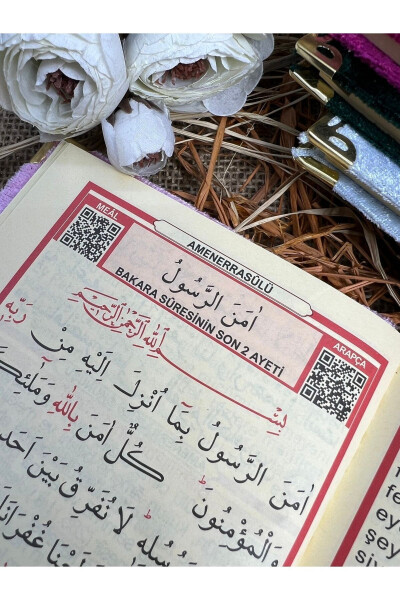 MEÂL
AMENERRASÛLÜ
اٰمَنَ الرَّسُولُ
BAKARA SÛRESİNİN SON 2 AYETİ
ARAPÇA
بِسْــــمِ اللّٰهِ الرَّحْمٰنِ الرَّحِيمِ
اٰمَنَ الرَّسُولُ بِمَٓا اُنْزِلَ اِلَيْهِ مِنْ رَبِّه۪
وَالْمُؤْمِنُونَۜ كُلٌّ اٰمَنَ بِاللّٰهِ
لَا نُفَرِّقُ بَيْنَ
غُفْرَانَكَ
fe
ey
şey
siy